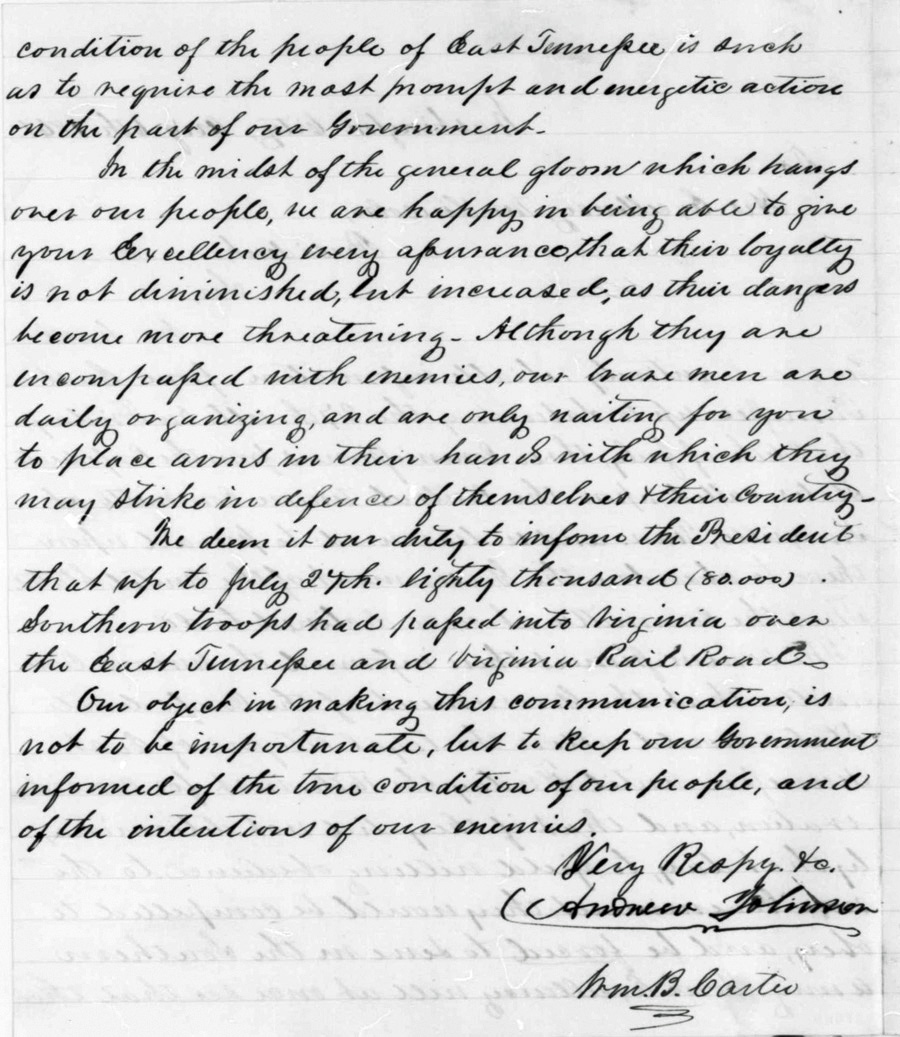 condition of the people of East Tennessee is such
as to require the most prompt and energetic action
on the part of our Government.
In the midst of the general gloom which hangs
over our people, we are happy in being able to give
your Excellency every assurance, that their loyalty
is not diminished, but increased, as their dangers
become more threatening - Although they are
encompassed with enemies, our brave men are
daily organizing, and are only waiting for you
to place arms in their hands with which they
may strike in defence of themselves & their Country -
We deem it our duty to inform the President
that up to July 27th. Eighty thousand (80.000)
Southern troops had passed into Virginia over
the East Tennessee and Virginia Rail Road -
Our object in making this communication, is
not to be importunate, but to keep our Government
informed of the true condition of our people, and
of the intentions of our enemies.
Very Respy. &c.
Andrew Johnson
Wm. B. Carter